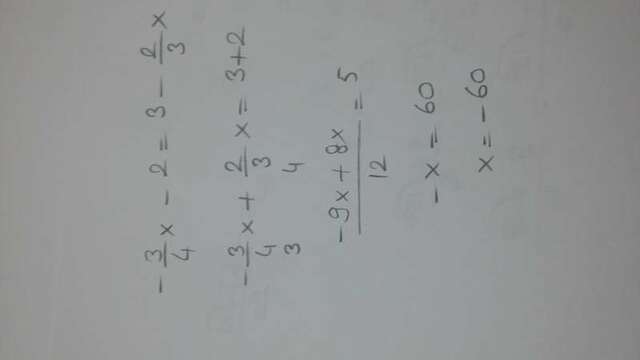 -3/4x - 2 = 3 - 2/3x
-3/4x + 2/3x = 3+2
3 4
-9x + 8x/12 = 5
-x = 60
x = -60